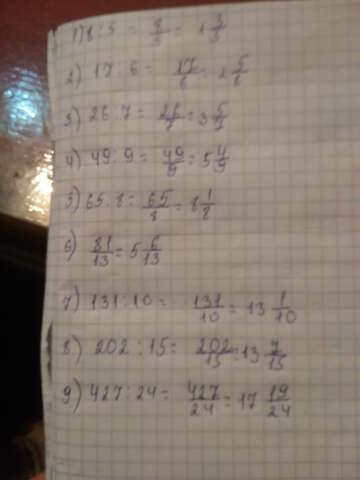 1) 8 : 5 = 8/5 = 1 3/5
2) 17 : 6 = 17/6 = 2 5/6
3) 26 : 7 = 26/7 = 3 5/7
4) 49 : 9 = 49/9 = 5 4/9
5) 65 : 8 = 65/8 = 8 1/8
6) 81/13 = 5 6/13
7) 131 : 10 = 131/10 = 13 1/10
8) 202 : 15 = 202/15 = 13 7/15
9) 427 : 24 = 427/24 = 17 19/24